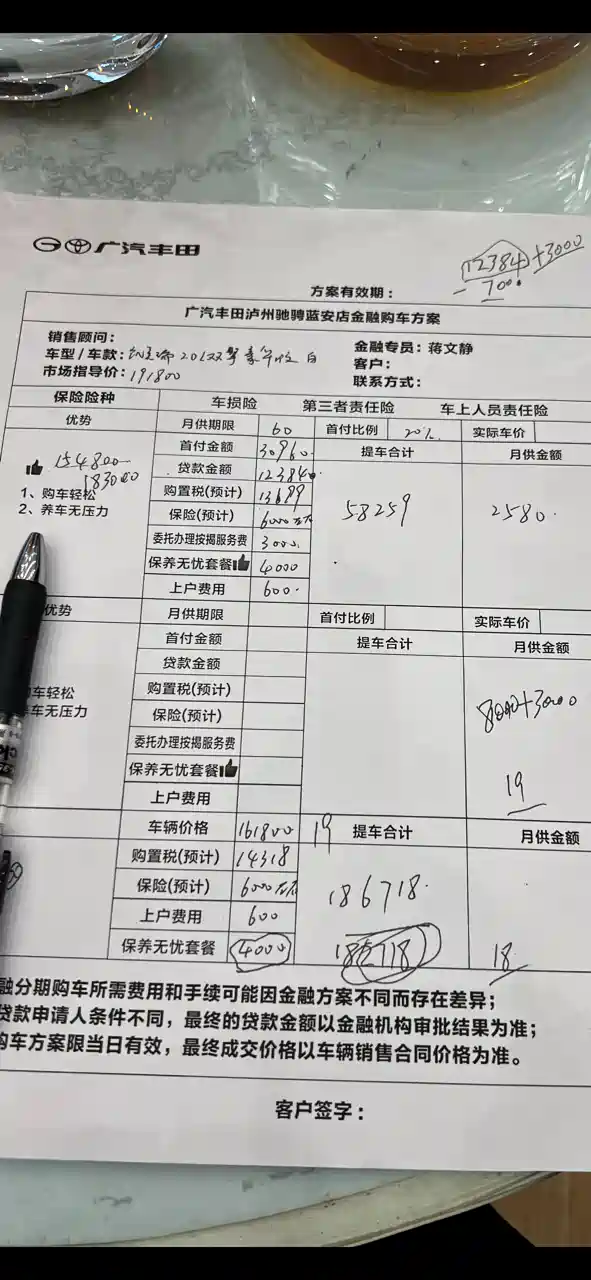 广汽丰田
12384+3000
- 7000
方案有效期：
广汽丰田泸州驰骋蓝安店金融购车方案
销售顾问：
金融专员：蒋文静
车型/车款： 2.0L双擎豪华版 白
客户：
市场指导价：191800
联系方式：
保险险种 车损险 第三者责任险 车上人员责任险
优势 月供期限 60 首付比例 20% 实际车价
首付金额 30960 提车合计 月供金额
154800
183000
贷款金额 123840
1、购车轻松
购置税(预计) 13699 58259 2580
2、养车无压力
保险(预计) 6000左右
委托办理按揭服务费 3000
保养无忧套餐 4000
上户费用 600
优势 月供期限 首付比例 实际车价
首付金额 提车合计 月供金额
贷款金额
车轻松
购置税(预计)
车无压力
保险(预计) 8000+3000
委托办理按揭服务费
保养无忧套餐
19
上户费用
车辆价格 161800 19 提车合计 月供金额
购置税(预计) 14318
保险(预计) 6000左右 186718
上户费用 600
保养无忧套餐 4000 18
融分期购车所需费用和手续可能因金融方案不同而存在差异；
贷款申请人条件不同，最终的贷款金额以金融机构审批结果为准；
购车方案限当日有效，最终成交价格以车辆销售合同价格为准。
客户签字：